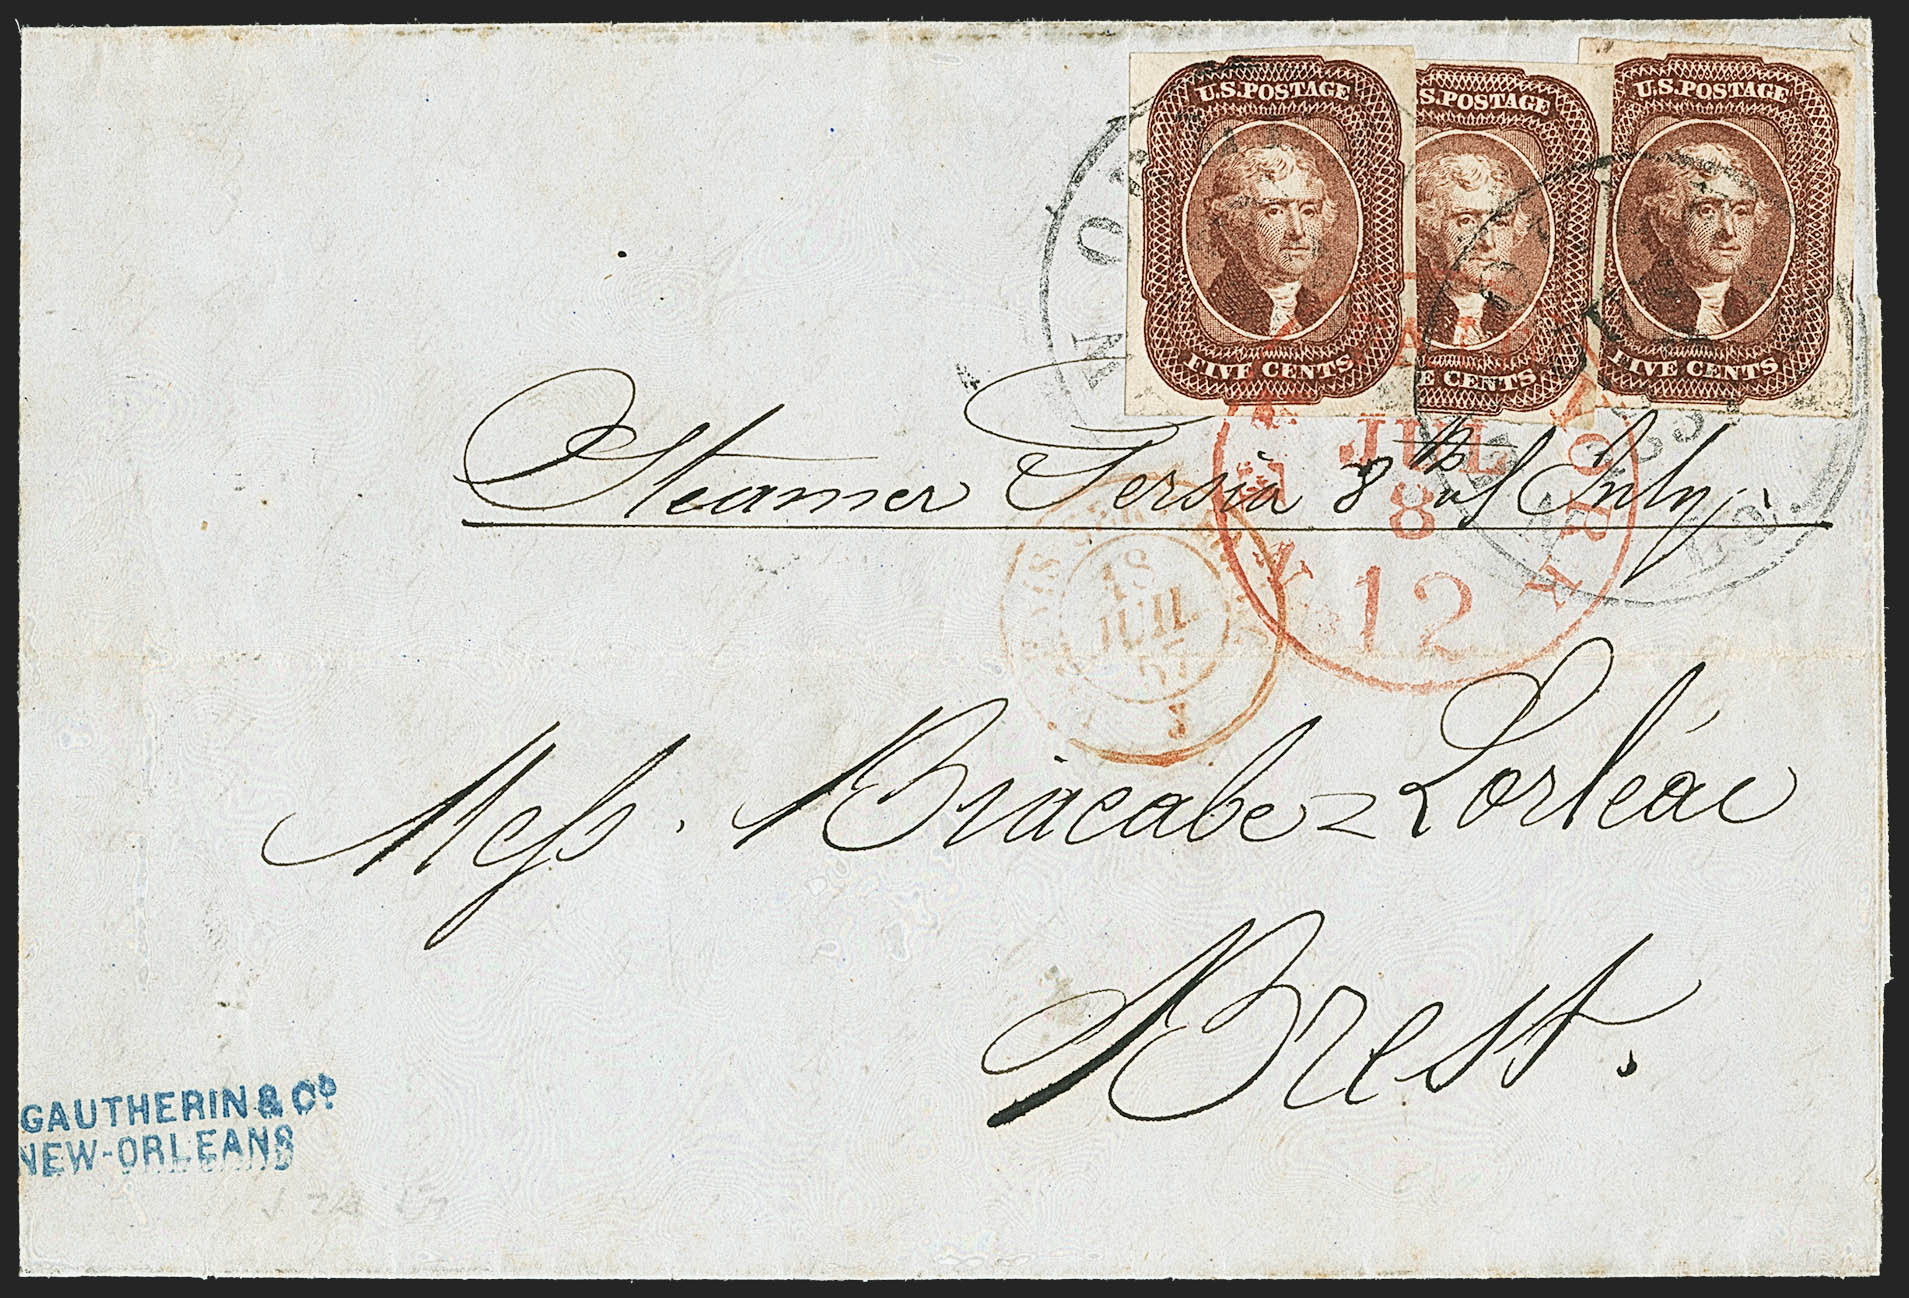 U.S.POSTAGE
FIVE CENTS
S.POSTAGE
E CENTS
U.S.POSTAGE
FIVE CENTS
Steamer Persia 8th of July
NEW YORK
JUL
8
12
18
JUIL
57
Mess. Briacabe = Lorléac
Brest.
GAUTHERIN & Co
NEW-ORLEANS